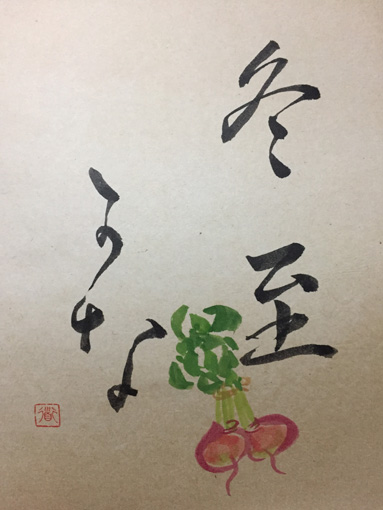 冬至
かな